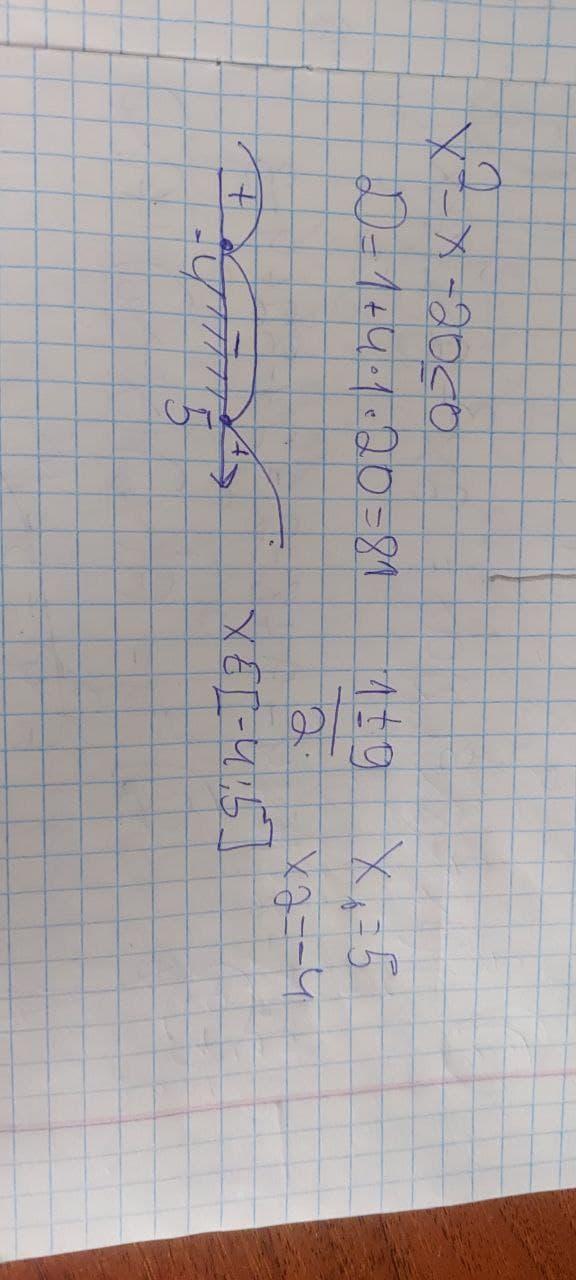 x² - x - 20 ≤ 0
D = 1 + 4·1·20 = 81
1 ± 9
2
x₁ = 5
x2 = -4
+ - +
-4 5
x ∈ [-4; 5]